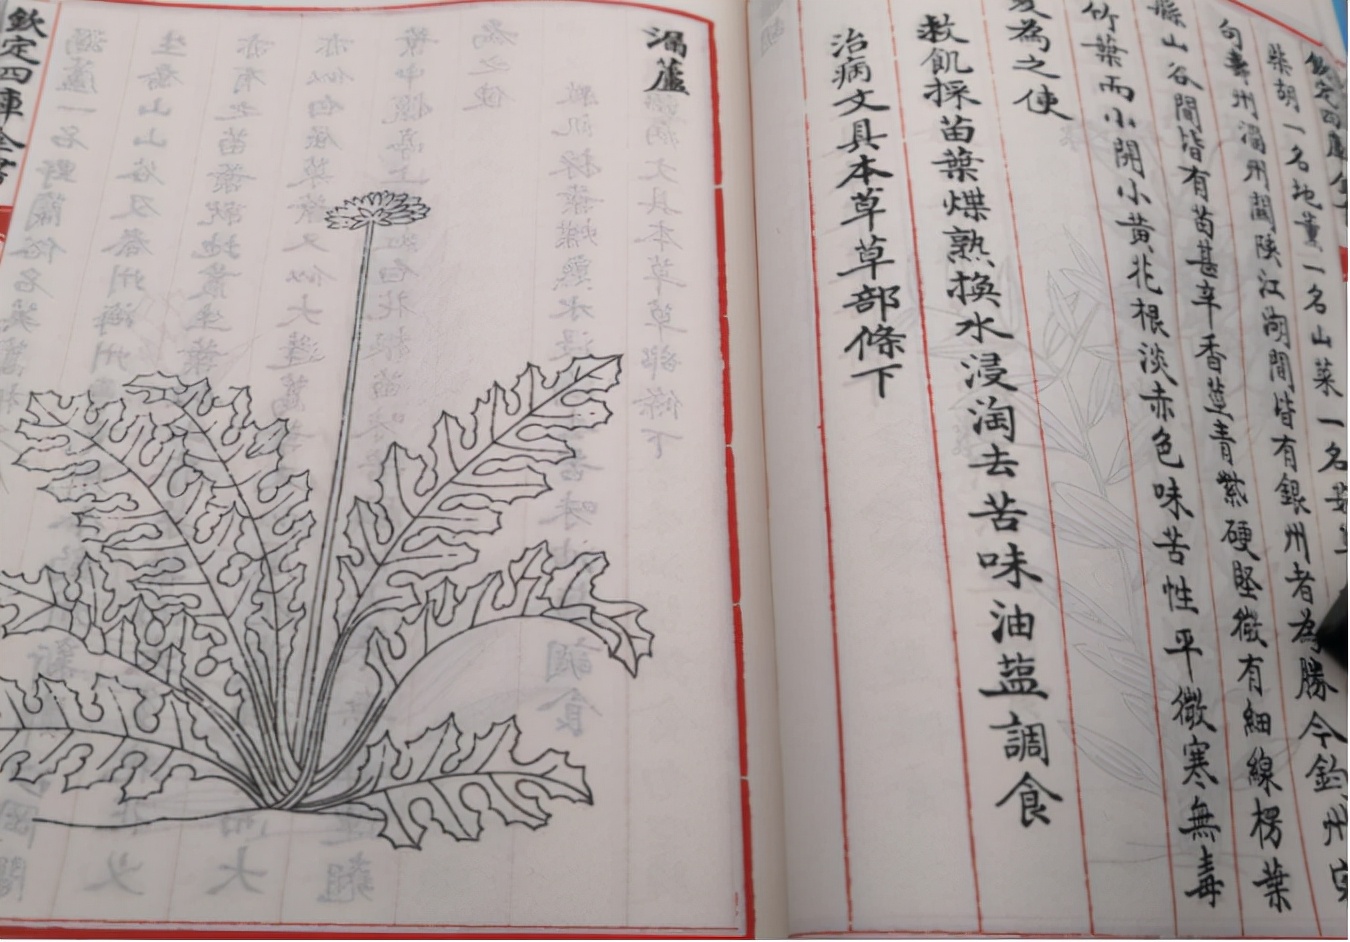 欽定四庫全
柴胡一名地薰一名山菜一名
句 州淄州關陝江湖間皆有銀州者為勝今鈞州
縣山谷間皆有苗甚辛香莖青紫硬堅微有細線楞葉
竹葉而小開小黄花根淡赤色味苦性平微寒無毒
為之使
救飢採苗葉煠熟換水浸淘去苦味油盐調食
治病文具本草草部條下
漏蘆
欽定四庫全書